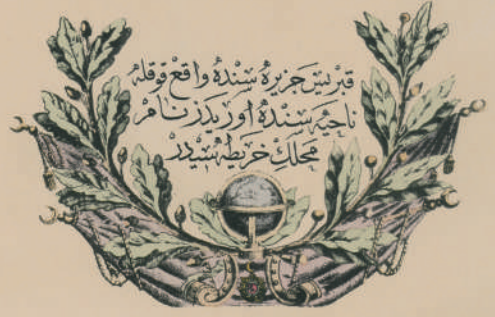 قبریس جزیرهٔ سنده واقع قوقله
ناحیه سنده اوریدز نام
محلك خریطه سیدر